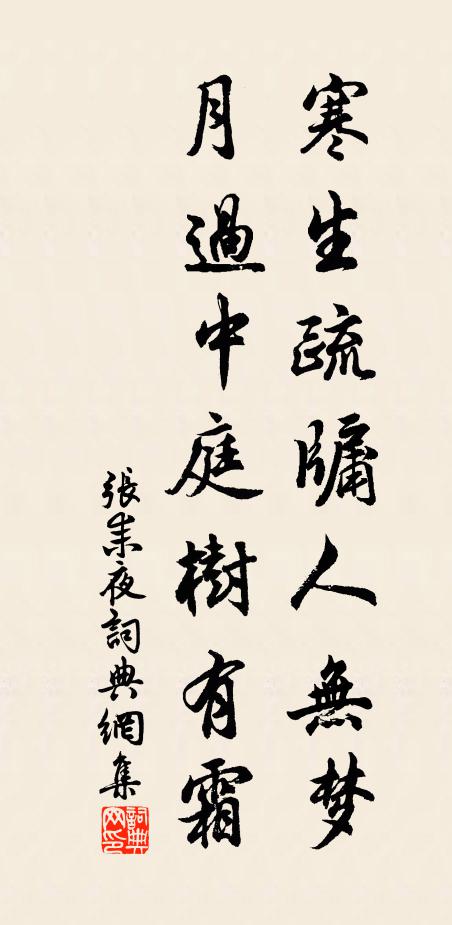 寒生疏牖人無梦
月過中庭樹有霜
張耒夜詞典網集
詞典網印